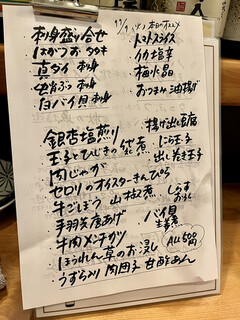 12/4 (火) 本日のオススメ
刺身盛り合せ
はがつお タタキ
真ダイ 刺身
白バイ貝 刺身
トマトスライス
イカ塩辛
梅水晶
おつまみ油揚げ
銀杏塩煎り
玉子とひじきの煮
肉じゃが
セロリのオイスターきんぴら
牛ごぼう 山椒煮
手羽先唐あげ
牛肉メンチカツ
ほうれん草のお浸し
うずら入り肉団子 甘酢あん
揚げ出し豆腐
にら玉子
出し巻き玉子
しらすおろし
バイ貝 生姜煮
ALL 500円